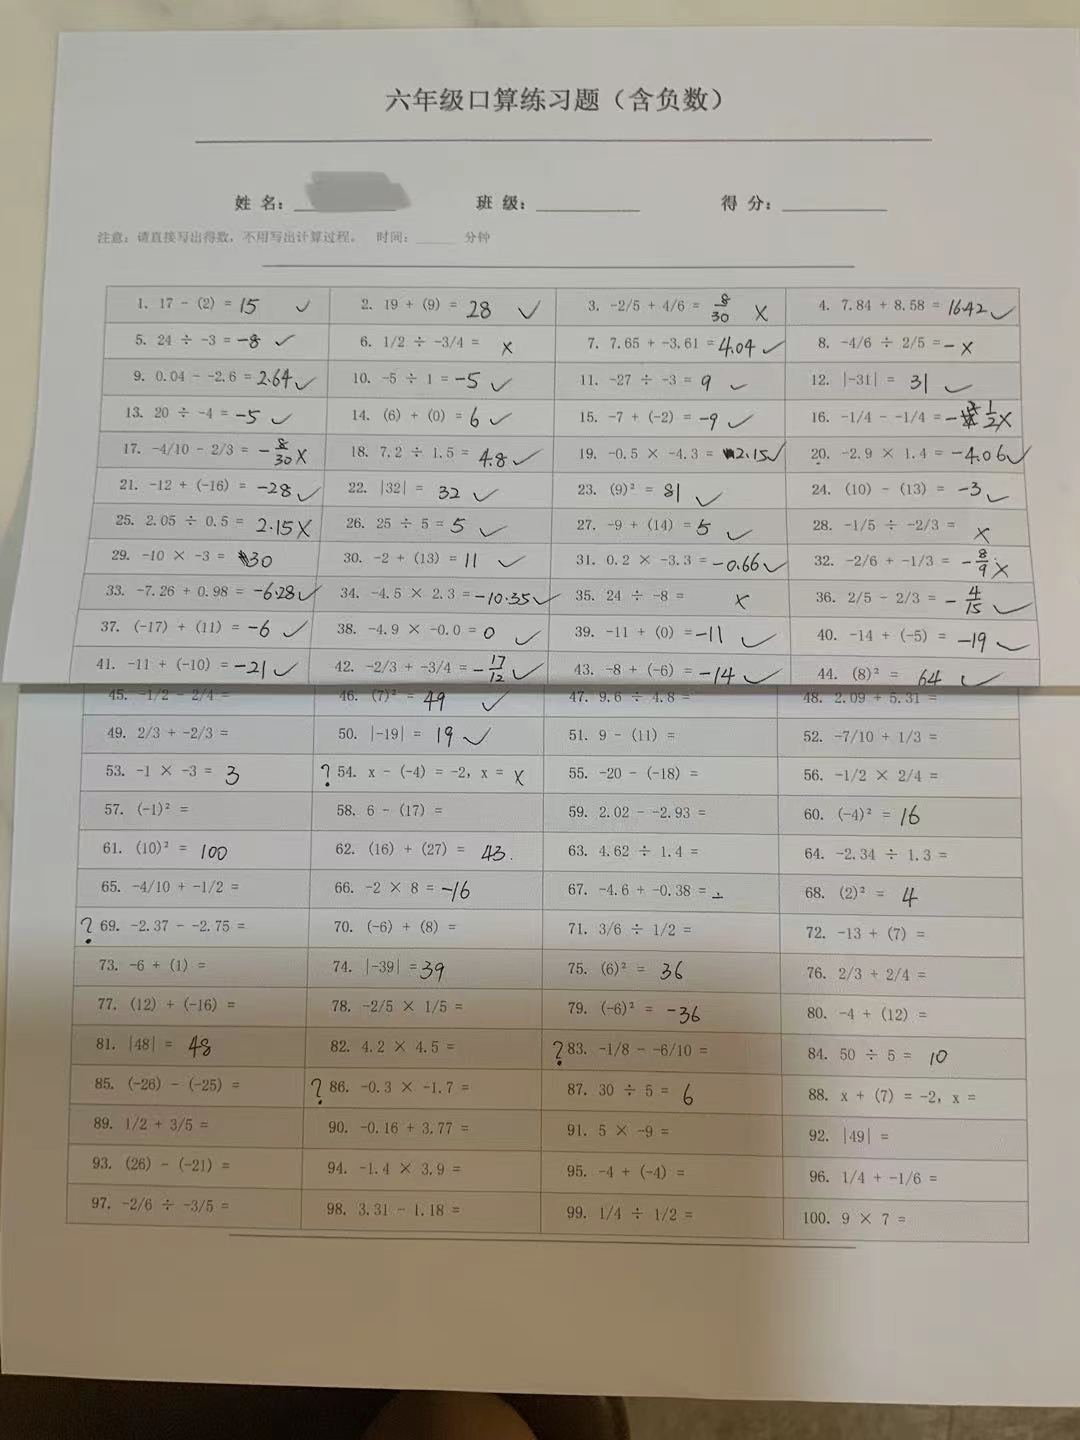 六年级口算练习题（含负数）
姓 名：________ 班 级：________ 得 分：________
注意：请直接写出得数，不用写出计算过程。 时间：____ 分钟
1. 17 - (2) = 15 ✓ 2. 19 + (9) = 28 ✓ 3. -2/5 + 4/6 = 8/30 × 4. 7.84 + 8.58 = 16.42 ✓
5. 24 ÷ -3 = -8 ✓ 6. 1/2 ÷ -3/4 = × 7. 7.65 + -3.61 = 4.04 ✓ 8. -4/6 ÷ 2/5 = - ×
9. 0.04 - -2.6 = 2.64 ✓ 10. -5 ÷ 1 = -5 ✓ 11. -27 ÷ -3 = 9 ✓ 12. |-31| = 31 ✓
13. 20 ÷ -4 = -5 ✓ 14. (6) + (0) = 6 ✓ 15. -7 + (-2) = -9 ✓ 16. -1/4 - -1/4 = - 1/2 ×
17. -4/10 - 2/3 = -8/30 × 18. 7.2 ÷ 1.5 = 4.8 ✓ 19. -0.5 × -4.3 = 2.15 ✓ 20. -2.9 × 1.4 = -4.06 ✓
21. -12 + (-16) = -28 ✓ 22. |32| = 32 ✓ 23. (9)² = 81 ✓ 24. (10) - (13) = -3 ✓
25. 2.05 ÷ 0.5 = 2.15 × 26. 25 ÷ 5 = 5 ✓ 27. -9 + (14) = 5 ✓ 28. -1/5 ÷ -2/3 = ×
29. -10 × -3 = 30 30. -2 + (13) = 11 ✓ 31. 0.2 × -3.3 = -0.66 ✓ 32. -2/6 + -1/3 = -8/9 ×
33. -7.26 + 0.98 = -6.28 ✓ 34. -4.5 × 2.3 = -10.35 ✓ 35. 24 ÷ -8 = × 36. 2/5 - 2/3 = -4/15 ✓
37. (-17) + (11) = -6 ✓ 38. -4.9 × -0.0 = 0 ✓ 39. -11 + (0) = -11 ✓ 40. -14 + (-5) = -19 ✓
41. -11 + (-10) = -21 ✓ 42. -2/3 + -3/4 = -17/12 ✓ 43. -8 + (-6) = -14 ✓ 44. (8)² = 64 ✓
45. -1/2 - 2/4 = 46. (7)² = 49 ✓ 47. 9.6 ÷ 4.8 = 48. 2.09 + 5.31 =
49. 2/3 + -2/3 = 50. |-19| = 19 ✓ 51. 9 - (11) = 52. -7/10 + 1/3 =
53. -1 × -3 = 3 ? 54. x - (-4) = -2, x = × 55. -20 - (-18) = 56. -1/2 × 2/4 =
57. (-1)² = 58. 6 - (17) = 59. 2.02 - -2.93 = 60. (-4)² = 16
61. (10)² = 100 62. (16) + (27) = 43. 63. 4.62 ÷ 1.4 = 64. -2.34 ÷ 1.3 =
65. -4/10 + -1/2 = 66. -2 × 8 = -16 67. -4.6 + -0.38 = 68. (2)² = 4
? 69. -2.37 - -2.75 = 70. (-6) + (8) = 71. 3/6 ÷ 1/2 = 72. -13 + (7) =
73. -6 + (1) = 74. |-39| = 39 75. (6)² = 36 76. 2/3 + 2/4 =
77. (12) + (-16) = 78. -2/5 × 1/5 = 79. (-6)² = -36 80. -4 + (12) =
81. |48| = 48 82. 4.2 × 4.5 = ? 83. -1/8 - -6/10 = 84. 50 ÷ 5 = 10
85. (-26) - (-25) = ? 86. -0.3 × -1.7 = 87. 30 ÷ 5 = 6 88. x + (7) = -2, x =
89. 1/2 + 3/5 = 90. -0.16 + 3.77 = 91. 5 × -9 = 92. |49| =
93. (26) - (-21) = 94. -1.4 × 3.9 = 95. -4 + (-4) = 96. 1/4 + -1/6 =
97. -2/6 ÷ -3/5 = 98. 3.31 - 1.18 = 99. 1/4 ÷ 1/2 = 100. 9 × 7 =